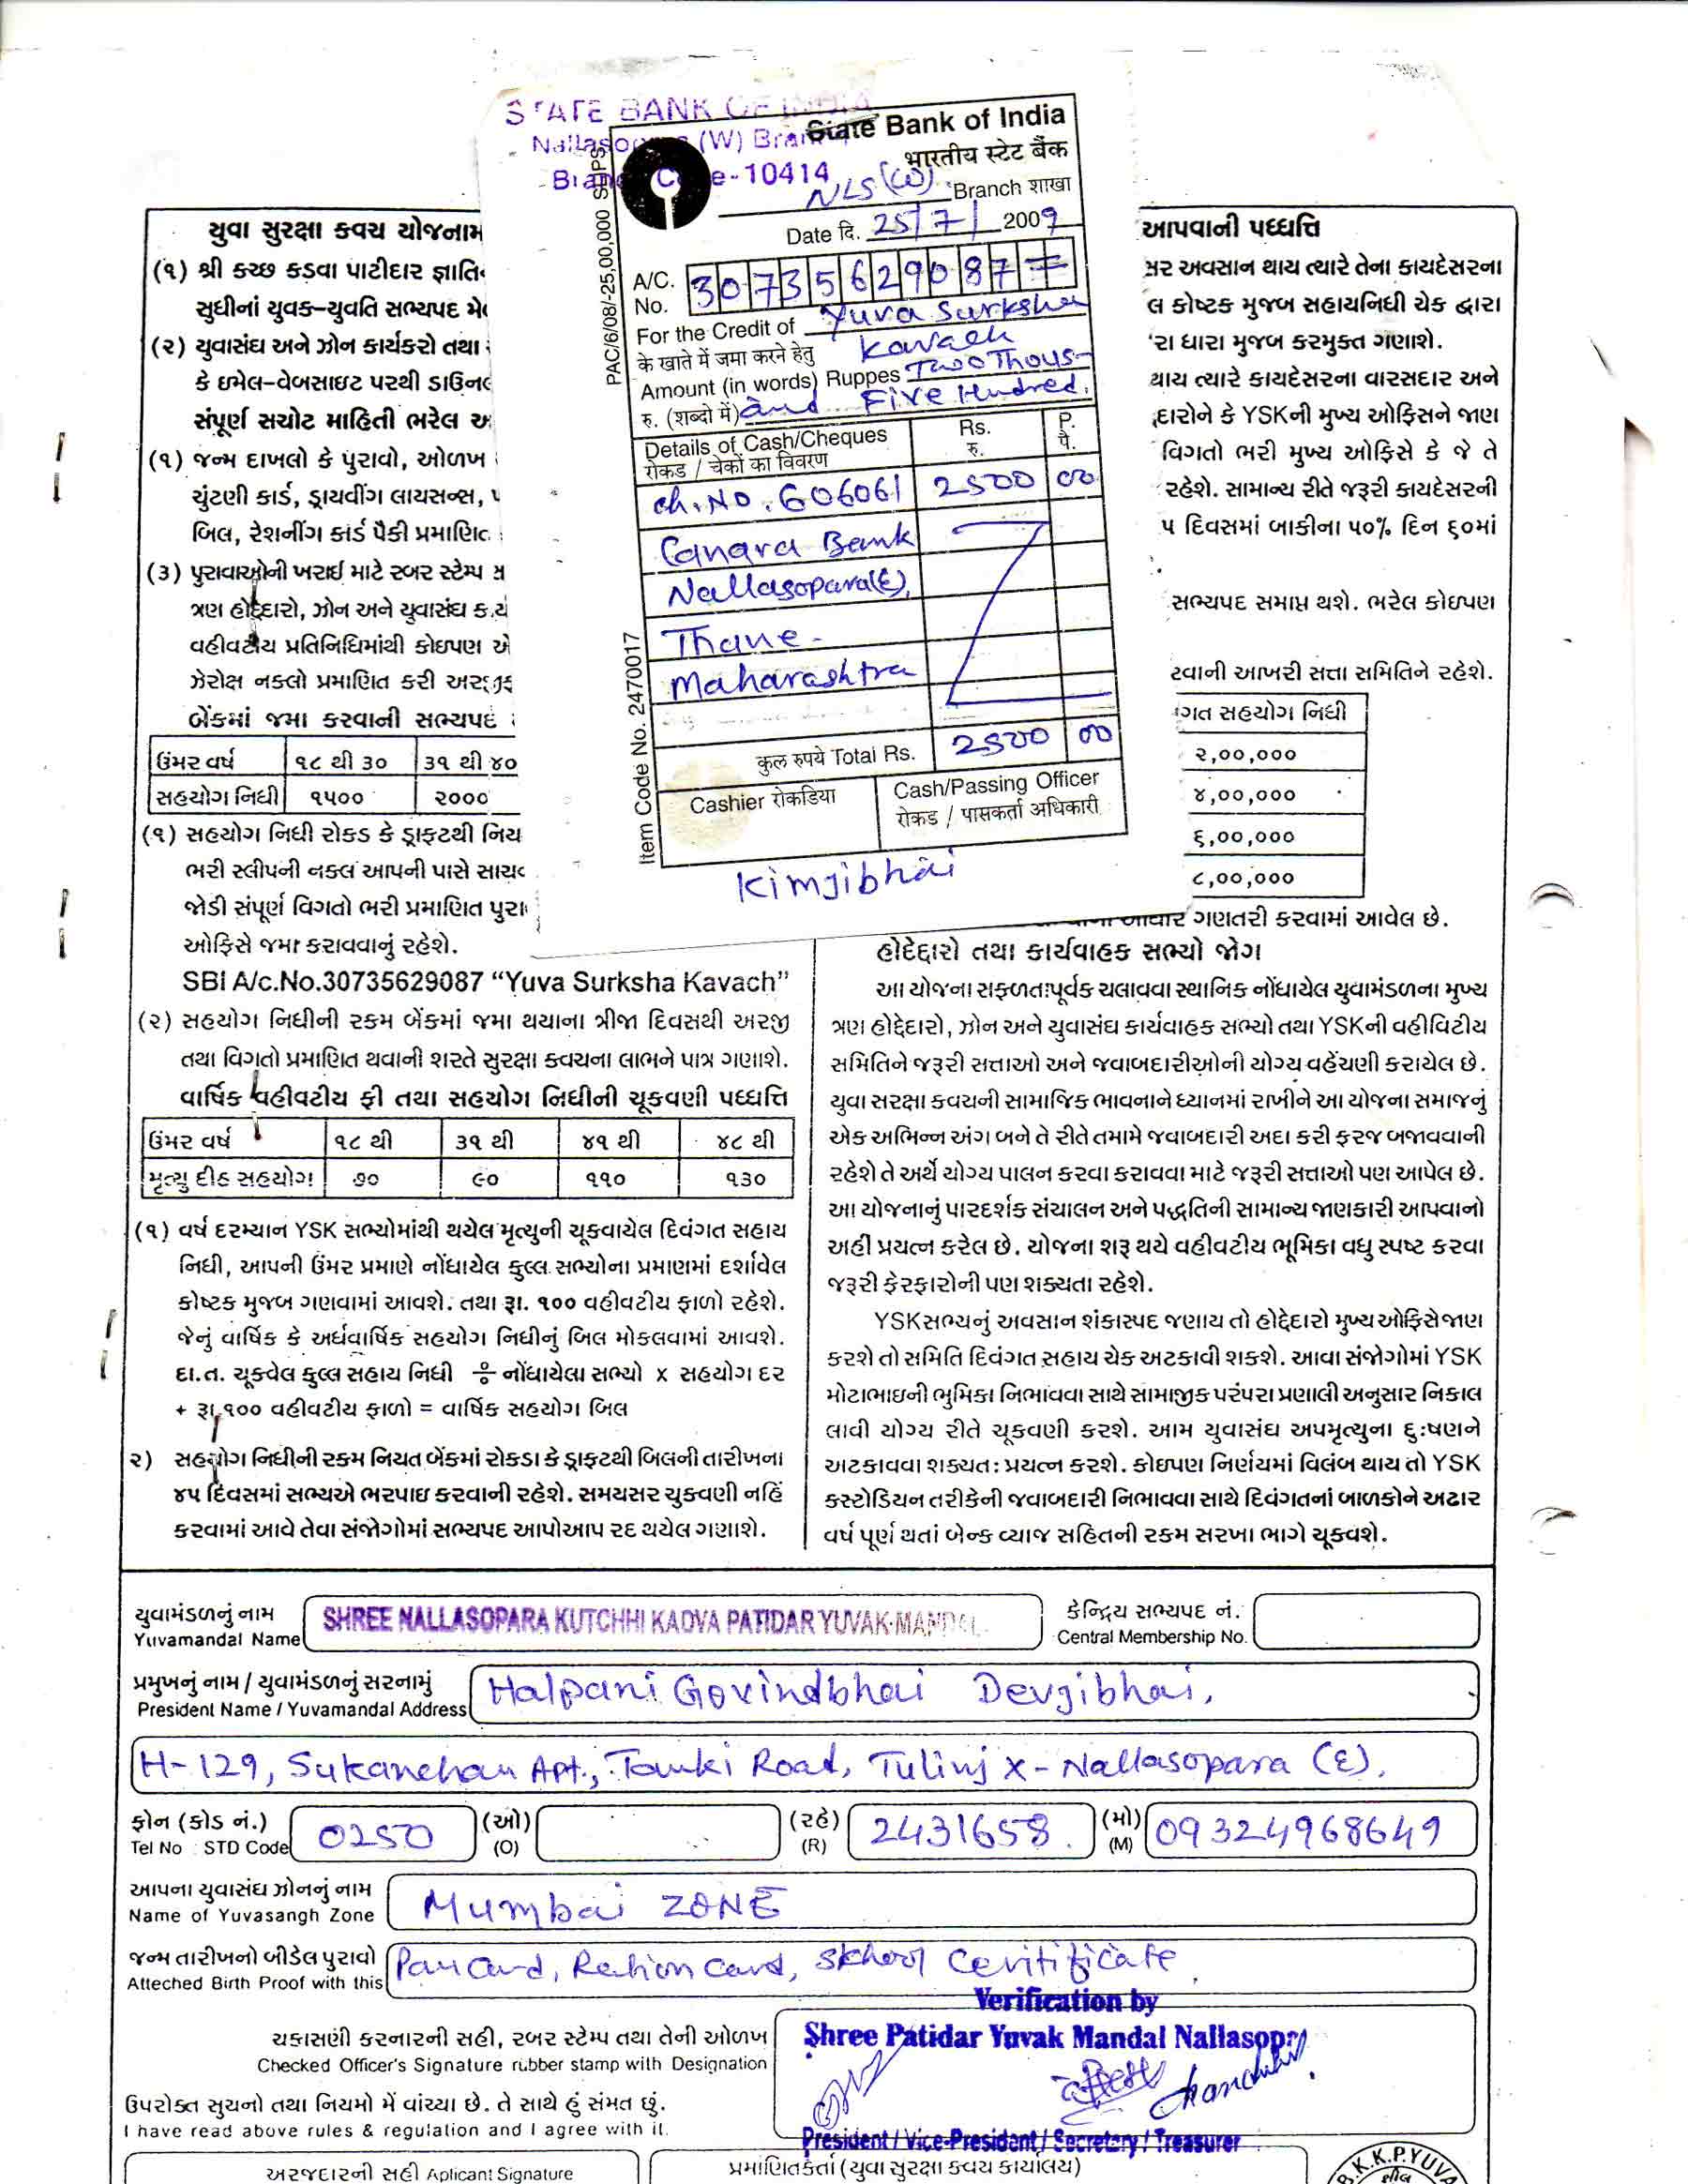 STATE BANK OF INDIA
(W)
Code-10414
State Bank of India
भारतीय स्टेट बैंक
NLS (W) Branch शाखा
Date दि. 25/7/2009
PAC/6/08/-25,00,000 SLIPS
Item Code No. 2470017
A/C. No. 30735629087
For the Credit of Yuva Surksha
के खाते में जमा करने हेतु Kavach
Amount (in words) Ruppes Two Thous-
रु. (शब्दो में) and Five Hundred.
Details of Cash/Cheques Rs. P.
रोकड / चेकों का विवरण रु. पै.
ch.No. 606061 2500 00
Canara Bank
Nallasopara(E),
Thane-
Maharashtra
कुल रुपये Total Rs. 2500 00
Cashier रोकडिया Cash/Passing Officer
रोकड / पासकर्ता अधिकारी
Kimjibhai
યુવા સુરક્ષા કવચ યોજનામ
(૧) શ્રી કચ્છ કડવા પાટીદાર જ્ઞાતિ
સુધીનાં યુવક-યુવતિ સભ્યપદ મે
(૨) યુવાસંઘ અને ઝોન કાર્યકરો તથા
કે ઇમેલ-વેબસાઇટ પરથી ડાઉનલ
સંપૂર્ણ સચોટ માહિતી ભરેલ અ
(૧) જન્મ દાખલો કે પુરાવો, ઓળખ
ચુંટણી કાર્ડ, ડ્રાયવીંગ લાયસન્સ, પ
બિલ, રેશનીંગ કાર્ડ પૈકી પ્રમાણિત
(૩) પુરાવાઓની ખરાઈ માટે રબર સ્ટેમ્પ
ત્રણ હોદ્દેદારો, ઝોન અને યુવાસંઘ
વહીવટીય પ્રતિનિધિમાંથી કોઇપણ એ
ઝેરોક્ષ નકલો પ્રમાણિત કરી
બેંકમાં જમા કરવાની સભ્યપદ
ઉંમર વર્ષ ૧૮ થી ૩૦ ૩૧ થી ૪૦
સહયોગ નિધી ૧૫૦૦ ૨૦૦૦
(૧) સહયોગ નિધી રોકડ કે ડ્રાફ્ટથી નિય
ભરી સ્લીપની નકલ આપની પાસે સાચવ
જોડી સંપૂર્ણ વિગતો ભરી પ્રમાણિત પુરા
ઓફિસે જમા કરાવવાનું રહેશે.
SBI A/c.No.30735629087 “Yuva Surksha Kavach”
(૨) સહયોગ નિધીની રકમ બેંકમાં જમા થયાના ત્રીજા દિવસથી અરજી
તથા વિગતો પ્રમાણિત થવાની શરતે સુરક્ષા કવચના લાભને પાત્ર ગણાશે.
વાર્ષિક વહીવટીય ફી તથા સહયોગ નિધીની ચૂકવણી પધ્ધત્તિ
ઉંમર વર્ષ ૧૮ થી ૩૧ થી ૪૧ થી ૪૮ થી
મૃત્યુ દીઠ સહયોગ ૭૦ ૯૦ ૧૧૦ ૧૩૦
(૧) વર્ષ દરમ્યાન YSK સભ્યોમાંથી થયેલ મૃત્યુની ચૂકવાયેલ દિવંગત સહાય
નિધી, આપની ઉંમર પ્રમાણે નોંધાયેલ કુલ્લ સભ્યોના પ્રમાણમાં દર્શાવેલ
કોષ્ટક મુજબ ગણવામાં આવશે. તથા રૂા. ૧૦૦ વહીવટીય ફાળો રહેશે.
જેનું વાર્ષિક કે અર્ધવાર્ષિક સહયોગ નિધીનું બિલ મોકલવામાં આવશે.
દા.ત. ચૂકવેલ કુલ્લ સહાય નિધી ÷ નોંધાયેલા સભ્યો x સહયોગ દર
+ રૂા.૧૦૦ વહીવટીય ફાળો = વાર્ષિક સહયોગ બિલ
૨) સહયોગ નિધીની રકમ નિયત બેંકમાં રોકડા કે ડ્રાફ્ટથી બિલની તારીખના
૪૫ દિવસમાં સભ્યએ ભરપાઇ કરવાની રહેશે. સમયસર ચુકવણી નહિં
કરવામાં આવે તેવા સંજોગોમાં સભ્યપદ આપોઆપ રદ થયેલ ગણાશે.
આપવાની પધ્ધત્તિ
સર અવસાન થાય ત્યારે તેના કાયદેસરના
લ કોષ્ટક મુજબ સહાયનિધી ચેક દ્વારા
રા ધારા મુજબ કરમુક્ત ગણાશે.
થાય ત્યારે કાયદેસરના વારસદાર અને
દારોને કે YSKની મુખ્ય ઓફિસને જાણ
વિગતો ભરી મુખ્ય ઓફિસે કે જે તે
રહેશે. સામાન્ય રીતે જરૂરી કાયદેસરની
૫ દિવસમાં બાકીના ૫૦% દિન ૬૦માં
સભ્યપદ સમાપ્ત થશે. ભરેલ કોઇપણ
ટવાની આખરી સત્તા સમિતિને રહેશે.
ગત સહયોગ નિધી
૨,૦૦,૦૦૦
૪,૦૦,૦૦૦
૬,૦૦,૦૦૦
૮,૦૦,૦૦૦
આધાર ગણતરી કરવામાં આવેલ છે.
હોદ્દેદારો તથા કાર્યવાહક સભ્યો જોગ
આ યોજના સફળતાપૂર્વક ચલાવવા સ્થાનિક નોંધાયેલ યુવામંડળના મુખ્ય
ત્રણ હોદ્દેદારો, ઝોન અને યુવાસંઘ કાર્યવાહક સભ્યો તથા YSKની વહીવિટીય
સમિતિને જરૂરી સત્તાઓ અને જવાબદારીઓની યોગ્ય વહેંચણી કરાયેલ છે.
યુવા સરક્ષા કવચની સામાજિક ભાવનાને ધ્યાનમાં રાખીને આ યોજના સમાજનું
એક અભિન્ન અંગ બને તે રીતે તમામે જવાબદારી અદા કરી ફરજ બજાવવાની
રહેશે તે અર્થે યોગ્ય પાલન કરવા કરાવવા માટે જરૂરી સત્તાઓ પણ આપેલ છે.
આ યોજનાનું પારદર્શક સંચાલન અને પદ્ધતિની સામાન્ય જાણકારી આપવાનો
અહીં પ્રયત્ન કરેલ છે. યોજના શરૂ થયે વહીવટીય ભૂમિકા વધુ સ્પષ્ટ કરવા
જરૂરી ફેરફારોની પણ શક્યતા રહેશે.
YSKસભ્યનું અવસાન શંકાસ્પદ જણાય તો હોદ્દેદારો મુખ્ય ઓફિસે જાણ
કરશે તો સમિતિ દિવંગત સહાય ચેક અટકાવી શકશે. આવા સંજોગોમાં YSK
મોટાભાઇની ભુમિકા નિભાવવા સાથે સામાજીક પરંપરા પ્રણાલી અનુસાર નિકાલ
લાવી યોગ્ય રીતે ચૂકવણી કરશે. આમ યુવાસંઘ અપમૃત્યુના દુઃષણને
અટકાવવા શક્યતઃ પ્રયત્ન કરશે. કોઇપણ નિર્ણયમાં વિલંબ થાય તો YSK
કસ્ટોડિયન તરીકેની જવાબદારી નિભાવવા સાથે દિવંગતનાં બાળકોને અઢાર
વર્ષ પૂર્ણ થતાં બેન્ક વ્યાજ સહિતની રકમ સરખા ભાગે ચૂકવશે.
યુવામંડળનું નામ SHREE NALLASOPARA KUTCHHI KADVA PATIDAR YUVAK-MANDAL કેન્દ્રિય સભ્યપદ નં.
Yuvamandal Name Central Membership No.
પ્રમુખનું નામ / યુવામંડળનું સરનામું Halpani Govindbhai Devjibhai,
President Name / Yuvamandal Address
H-129, Sukanchan Apt., Tanki Road, Tulinj X- Nallasopara (E).
ફોન (કોડ નં.) 0250 (ઓ) (રહે) 2431658. (મો) 09324968649
Tel No : STD Code (O) (R) (M)
આપના યુવાસંઘ ઝોનનું નામ Mumbai ZONE
Name of Yuvasangh Zone
જન્મ તારીખનો બીડેલ પુરાવો Pan Card, Rationcard, Skhool Ceritificate
Atteched Birth Proof with this
Verification by
Shree Patidar Yuvak Mandal Nallasopra
ચકાસણી કરનારની સહી, રબર સ્ટેમ્પ તથા તેની ઓળખ
Checked Officer's Signature rubber stamp with Designation
ઉપરોક્ત સુચનો તથા નિયમો મેં વાંચ્યા છે. તે સાથે હું સંમત છું.
I have read above rules & regulation and I agree with it.
President / Vice-President / Secretary / Treasurer
અરજદારની સહી Aplicant Signature પ્રમાણિતકર્તા (યુવા સુરક્ષા કવચ કાર્યાલય)
K.K.P.YUVA
સીલ